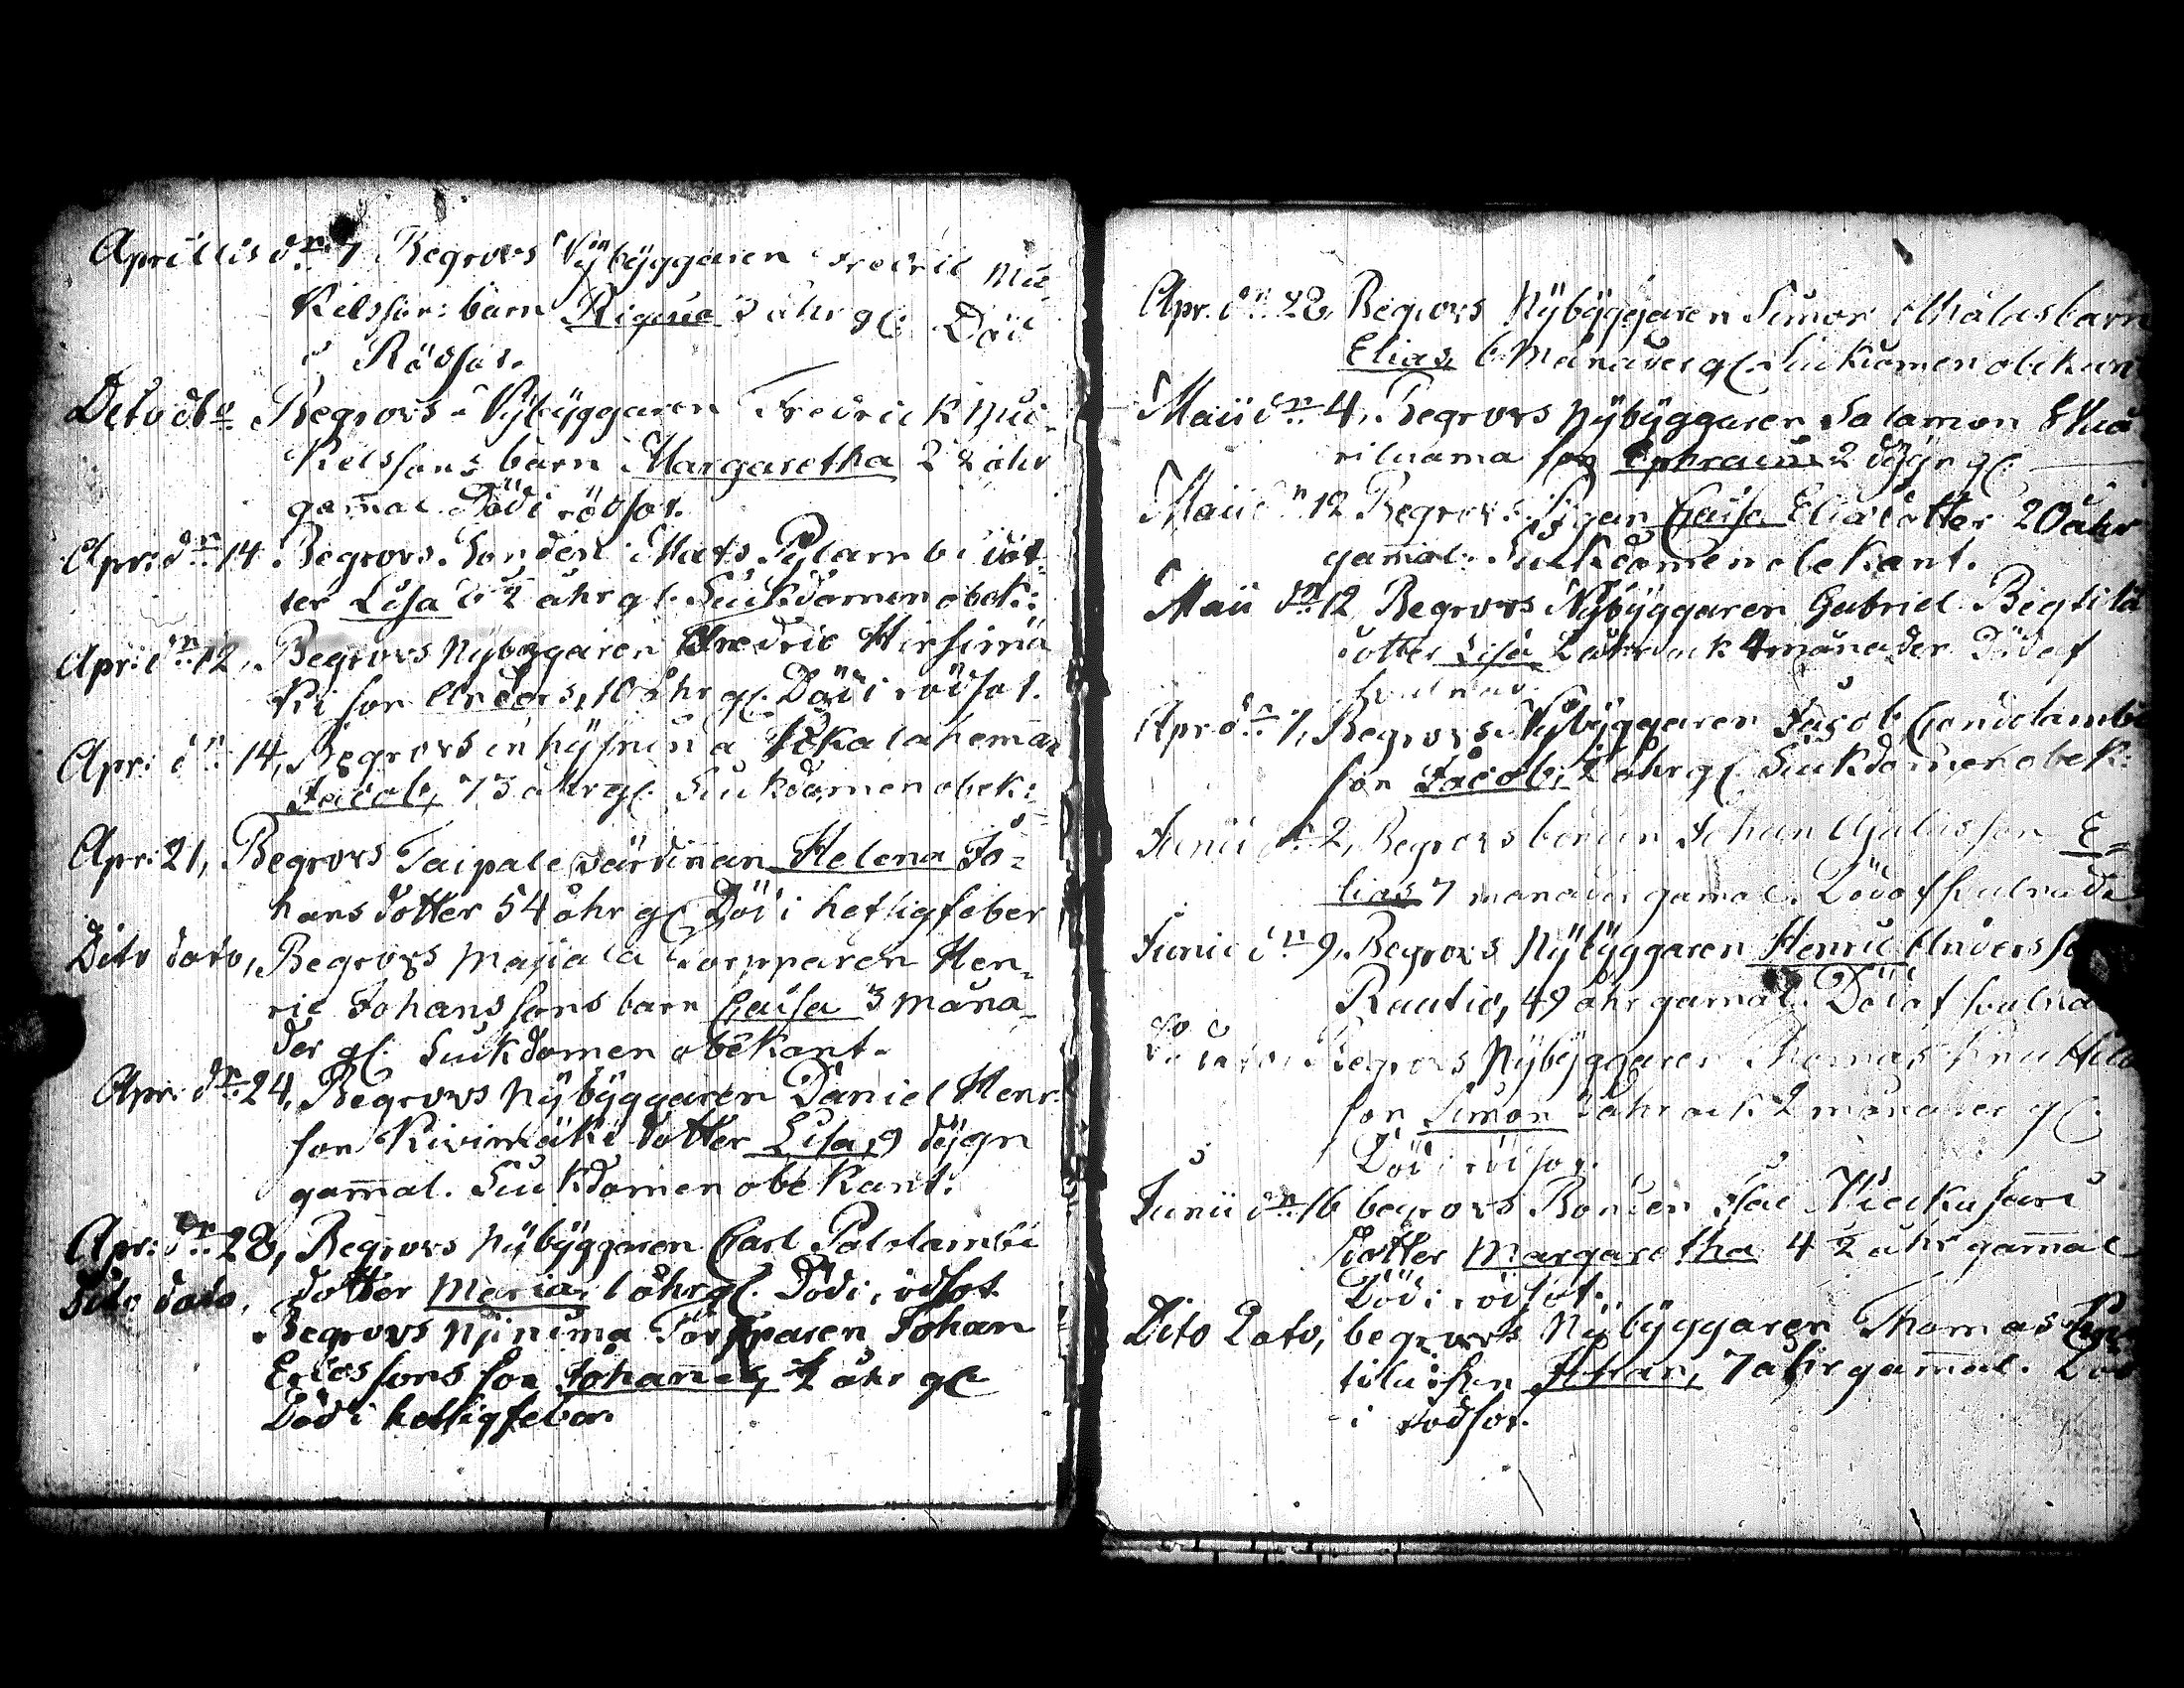 Aprillis dn 7 Begrovs Nÿbÿggaren Fredric Mic-
kelssons barn Rigina 3 åhr gl. Död
i Rödsot.
Dito dto Begrovs Nÿbÿggaren Fredrick Mic-
kelssons barn Margaretha 2 ½ åhr
gamal. Död i rödsot.
Apr: dn 14 Begrovs Bonden Mats Pylam bi dot-
ter Lisa 6 ½ åhr gl. Siukdomen obek:
Apr: dn 12, Begrovs Nÿbyggaren Fredric Hirsimä
ki son Anders, 10 åhr gl. Död i rödsot.
Apr: dn 14, Begrovs inhÿsning a
Jacob, 73 åhr gl. Siukdomen obek:
Apr: 21, Begrovs Taipale värdinnan Helena Jo-
hans dotter 54 åhr gl Död i hetsig feber
Dito dato, Begrovs Torpparen Hen-
ric Johanssons barn Caisa 3 måna-
der gl. Siukdomen obekant.
Apr: dn 24, Begrovs Nÿbÿggaren Daniel Henr:
son Kivimäki dotter Lisa, 9 dÿgn
gamal. Siukdomen obekant.
Apr: dn 28, Begrovs Nÿbÿggaren Carl Palolambi
dotter Maria, 1 åhr gl. Död i rödsot
Dito dato,
Begrovs Niinima Torpparen Johan
Ericssons son Johannes, ½ åhr gl
Död i hetsig feber.
Apr. dn 28, Begrovs Nÿbÿggaren Simon barn
Elias, 6 Månader gl. Siukdomen obekan
Maii dn 4, Begrovs Nÿbÿggaren Salamon
son Ephraim 2 dÿgn gl.
Maii dn 12 Begrovs Pigan Caisa Eliædotter 20 åhr
gamal. Siukdomen obekant.
Maii dn 12 Begrovs Nÿbÿggaren Gabriel
dotter Lisa 2 åhr ock 4 månader Död af

Apr dn 7, Begrovs Nÿbÿggaren Jacob
son Jacob, 2 åhr gl. Siukdomen obek:
Junii dn 2, Begrovs bonden Johan son E-
lias 7 månader gamal. Död af
Junii dn 9, Begrovs Nÿbÿggaren Henric Anders
Rautio, 49 åhr gamal. Död af
Begrovs Nÿbÿggaren Thomas
son Simon åhr ock 2 månader gl.
Död i rödsot.
Junii dn 16 begrovs Bonden
dotter Margaretha 4 ½ åhr gamal
Död i rödsot.
Dito Dato, begrovs Nÿbÿggaren Thomas
son Johan, 7 åhr gamal. Död
i rödsot.